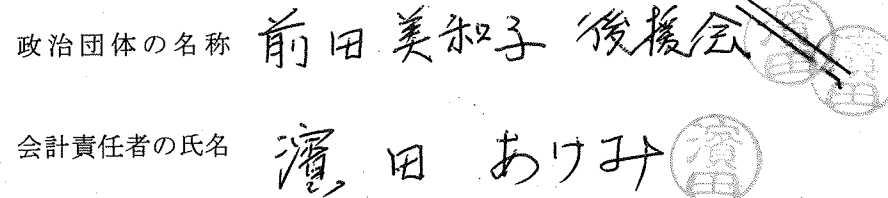 政治団体の名称 前田美和子後援会 濱田 濱田
会計責任者の氏名 濱田 あけみ 濱田